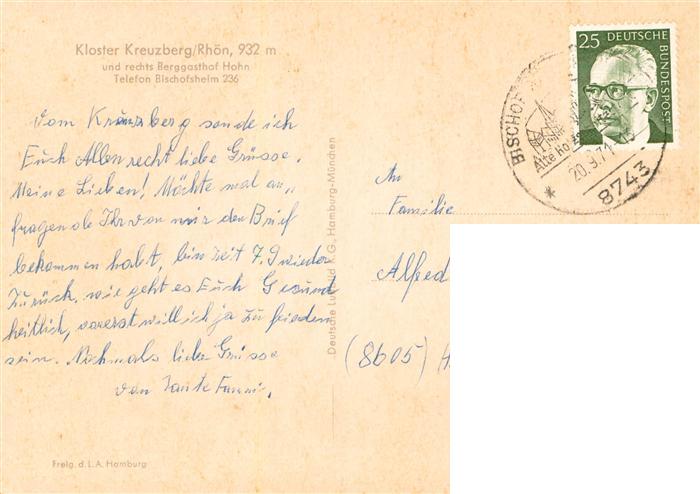 Kloster Kreuzberg/Rhön, 932 m
und rechts Berggasthof Hohn
Telefon Bischofsheim 236
Vom Kreuzberg sende ich
Euch Allen recht liebe Grüsse.
Meine Lieben! Möchte mal an„
fragen ob Ihr von mir den Brief
bekommen habt, bin seit 7.9 wieder
Zurück. wie geht es Euch Gesund
heitlich, vorerst will ich ja Zu frieden
sein. Nochmals liebe Grüsse
von Tante Fanni.
Freig. d. L. A. Hamburg
Deutsche Luftbild K.G., Hamburg-München
25 DEUTSCHE
BUNDESPOST
BISCHOF
Alte
20.9.71
8743
An
Familie
Alfred
(8605)